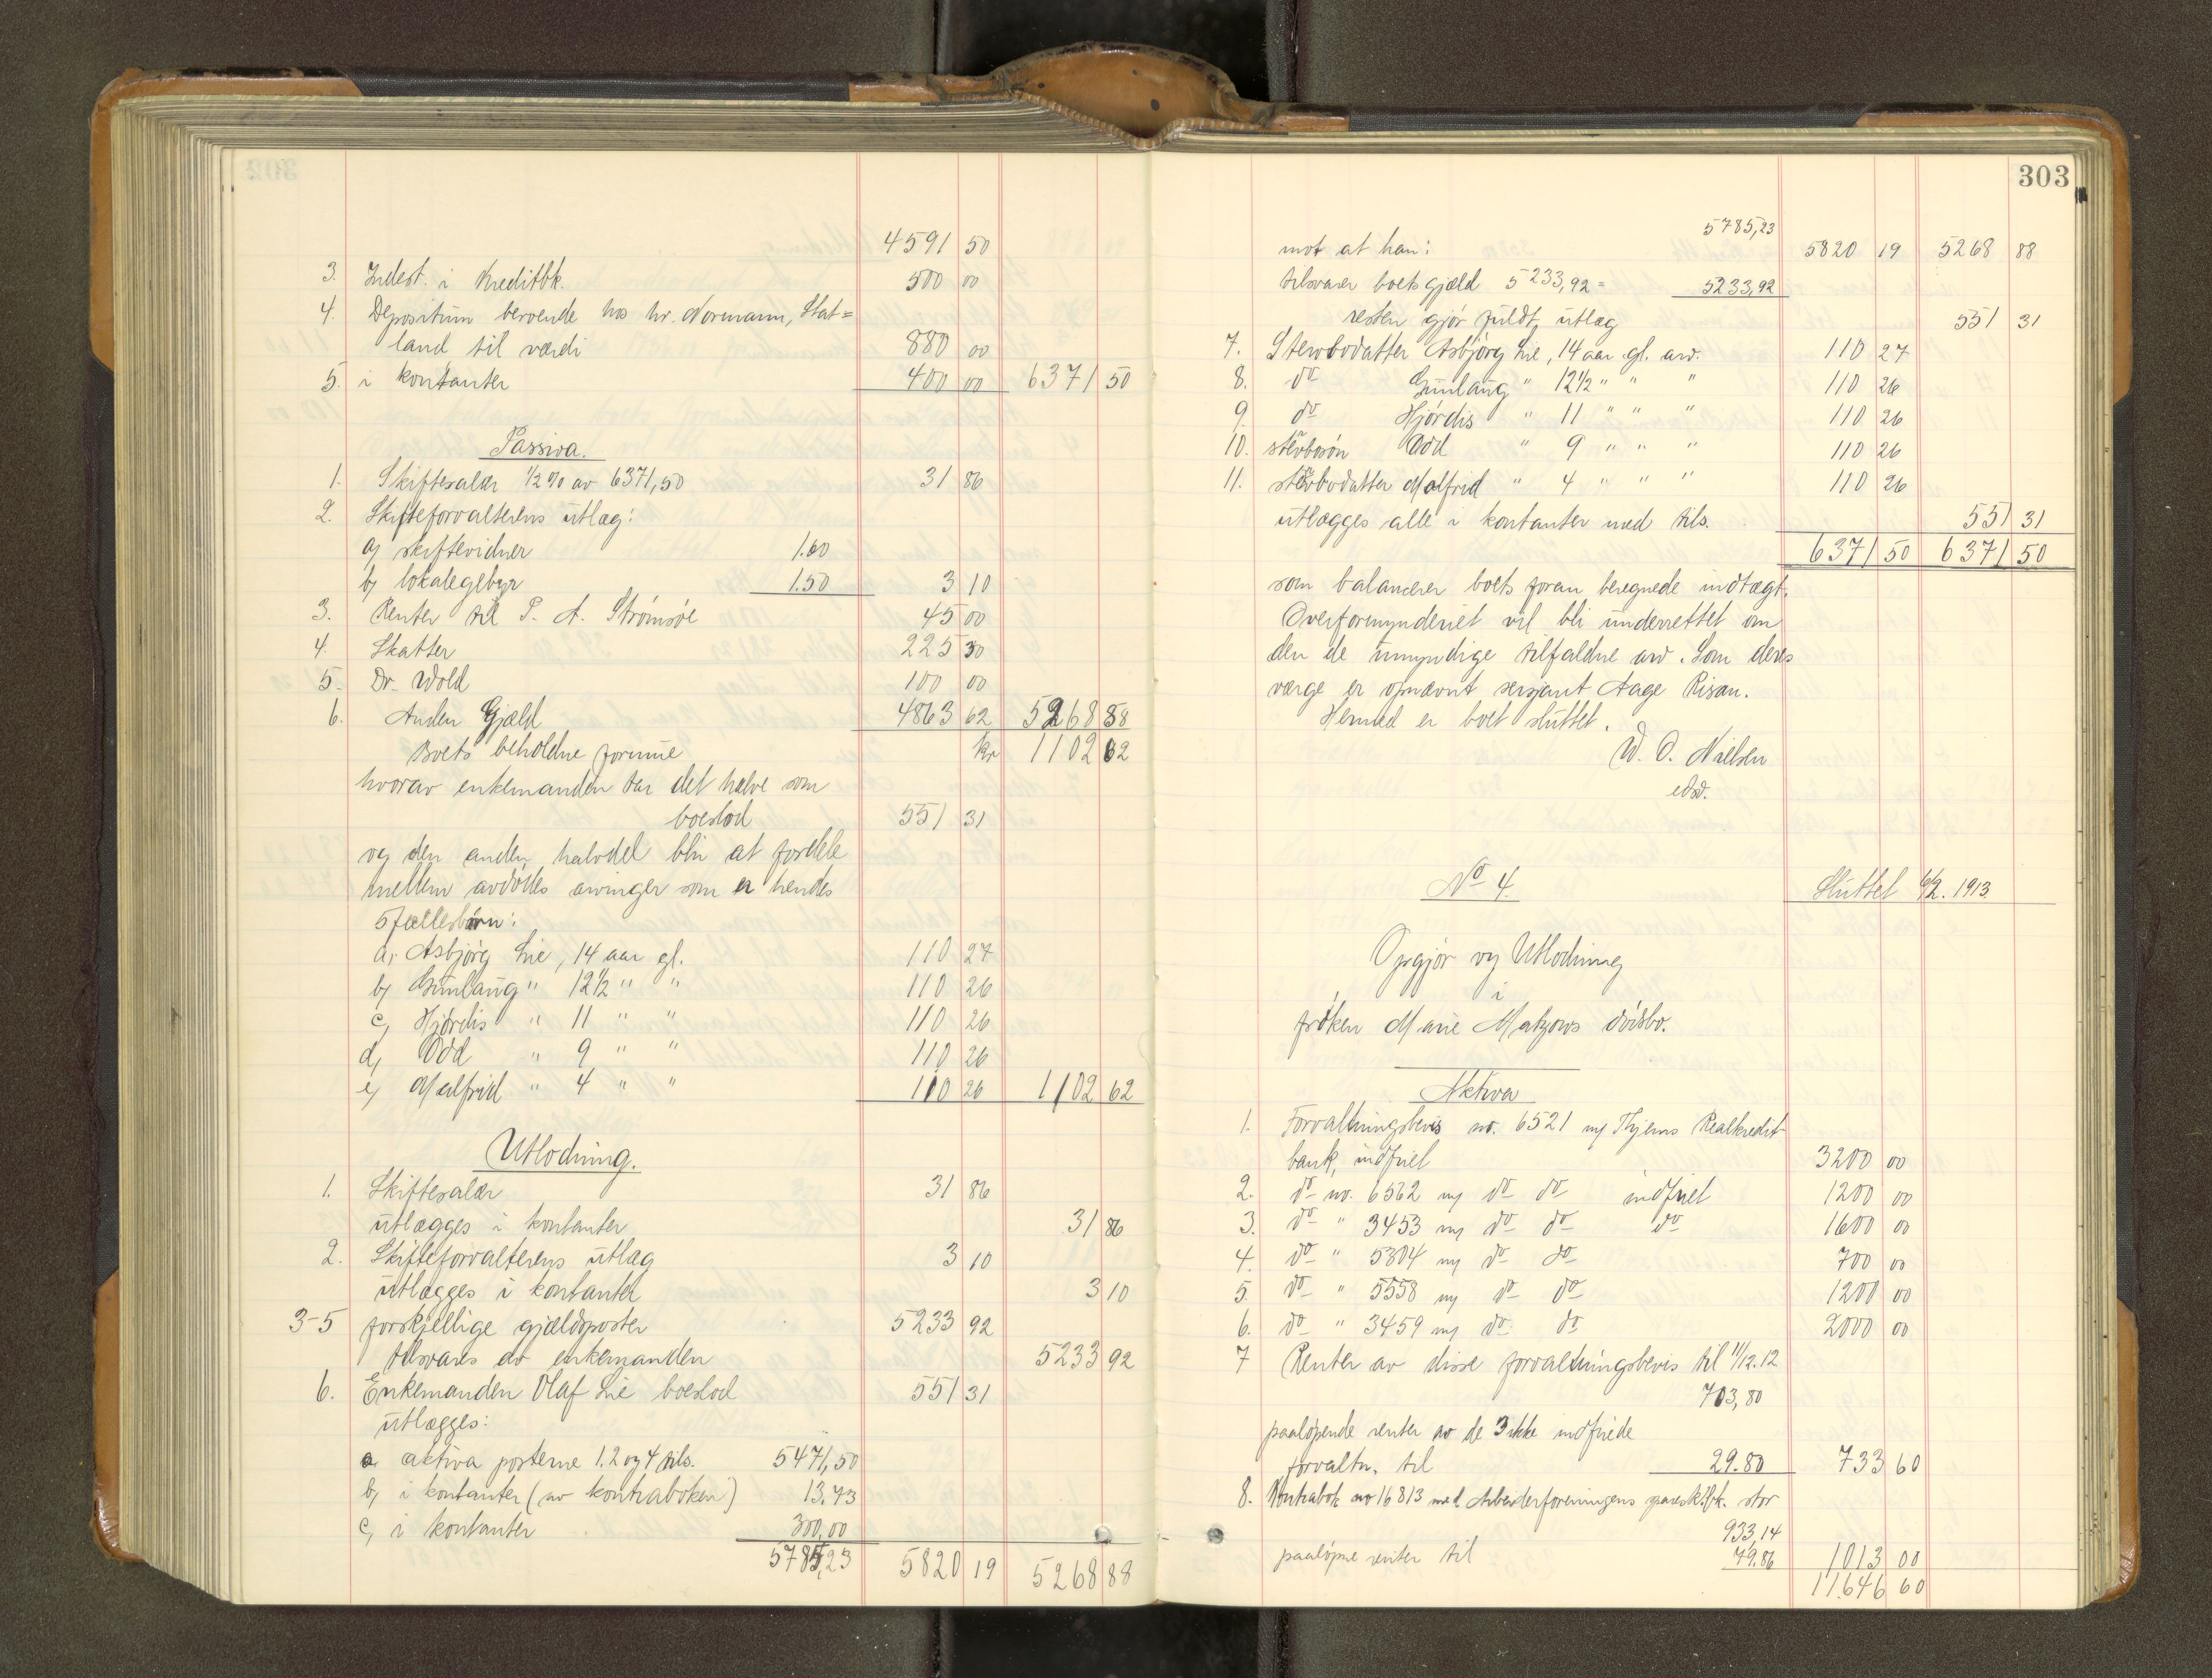 4591 50
3. Indest. i Kreditbk. 500 00
4. Depositum beroende hos hr. Normann, Stat=
land til værdi 880 00
5. i kontanter 400 00 6371 50
Passiva.
1. Skiftesalær 1/2 % av 6371,50 31 86
2. Skifteforvalterens utlæg:
a) skiftevidner 1.60
b) lokalegebyr 1.50 3 10
3. Renter til P. A. Strømsøe 45 00
4. Skatter 225 30
5. Dr. Wold 100 00
6. Anden Gjæld 4863 62 5268 88
Boets beholdne formue kr 1102 62
hvorav enkemanden tar det halve som
boeslod 551 31
og den anden halvdel blir at fordele
mellem avdødes arvinger som er hendes
5 fællesbørn:
a, Asbjørg Lie, 14 aar gl. 110 27
b) Gunlaug " 12 1/2 " " 110 26
c) Hjørdis " 11 " " 110 26
d) Odd " 9 " " 110 26
e) Malfrid " 4 " " 110 26 1102 62
Utlodning.
1. Skiftesalær 31 86
utlægges i kontanter 31 86
2. Skifteforvalterens utlæg 3 10
utlægges i kontanter 3 10
3-5 forskjellige gjældsposter 5233 92
tilsvares av enkemanden 5233 92
6. Enkemanden Olaf Lie boeslod 551 31
utlægges:
a. aktiva posterne 1.2 og 4 tils. 5471,50
b) i kontanter (av kontraboken) 13.73
c, i kontanter 300,00
5785,23 5820 19 5268 88
303
5785,23
mot at han: 5820 19 5268 88
tilsvarer boets gjæld 5233,92 = 5233,92
resten gjør fuldt utlæg 551 31
7. Stervbodatter Asbjørg Lie, 14 aar gl. arv. 110 27
8. do Gunlaug " 12 1/2 " " " 110 26
9. do Hjørdis " 11 " " " 110 26
10. stervbosøn Odd " 9 " " " 110 26
11. stervbodatter Malfrid " 4 " " " 110 26
utlægges alle i kontanter med tils. 551 31
6371 50 6371 50
som balancerer boets foran beregnede indtægt.
Overformynderiet vil bli underrettet om
den de umyndige tilfaldne arv. Som deres
værge er opnævnt sersjant Aage Risan.
Hermed er boet sluttet.
W. O. Nielsen
edsv.
No 4. Sluttet 6/2. 1913
Opgjør og Utlodning
i
frøken Marie Matzows dødsbo.
Aktiva
1. Forvaltningsbevis no. 6521 m/ Thjems Realkredit-
bank, indfriet 3200 00
2. do no. 6562 m/ do do indfriet 1200 00
3. do " 3453 m/ do do do 1600 00
4. do " 5304 m/ do do 700 00
5. do " 5558 m/ do do 1200 00
6. do " 3459 m/ do do 2000 00
7 Renter av disse forvaltningsbevis til 11/12.12
703,80
paaløpende renter av de 3 ikke indfriede
forvaltn. til 29.80 733 60
8. Kontrabok no 16813 med Arbeiderforeningens sparesk.bk. stor
933,14
paaløpne renter til 79.86 1013 00
11.646 60